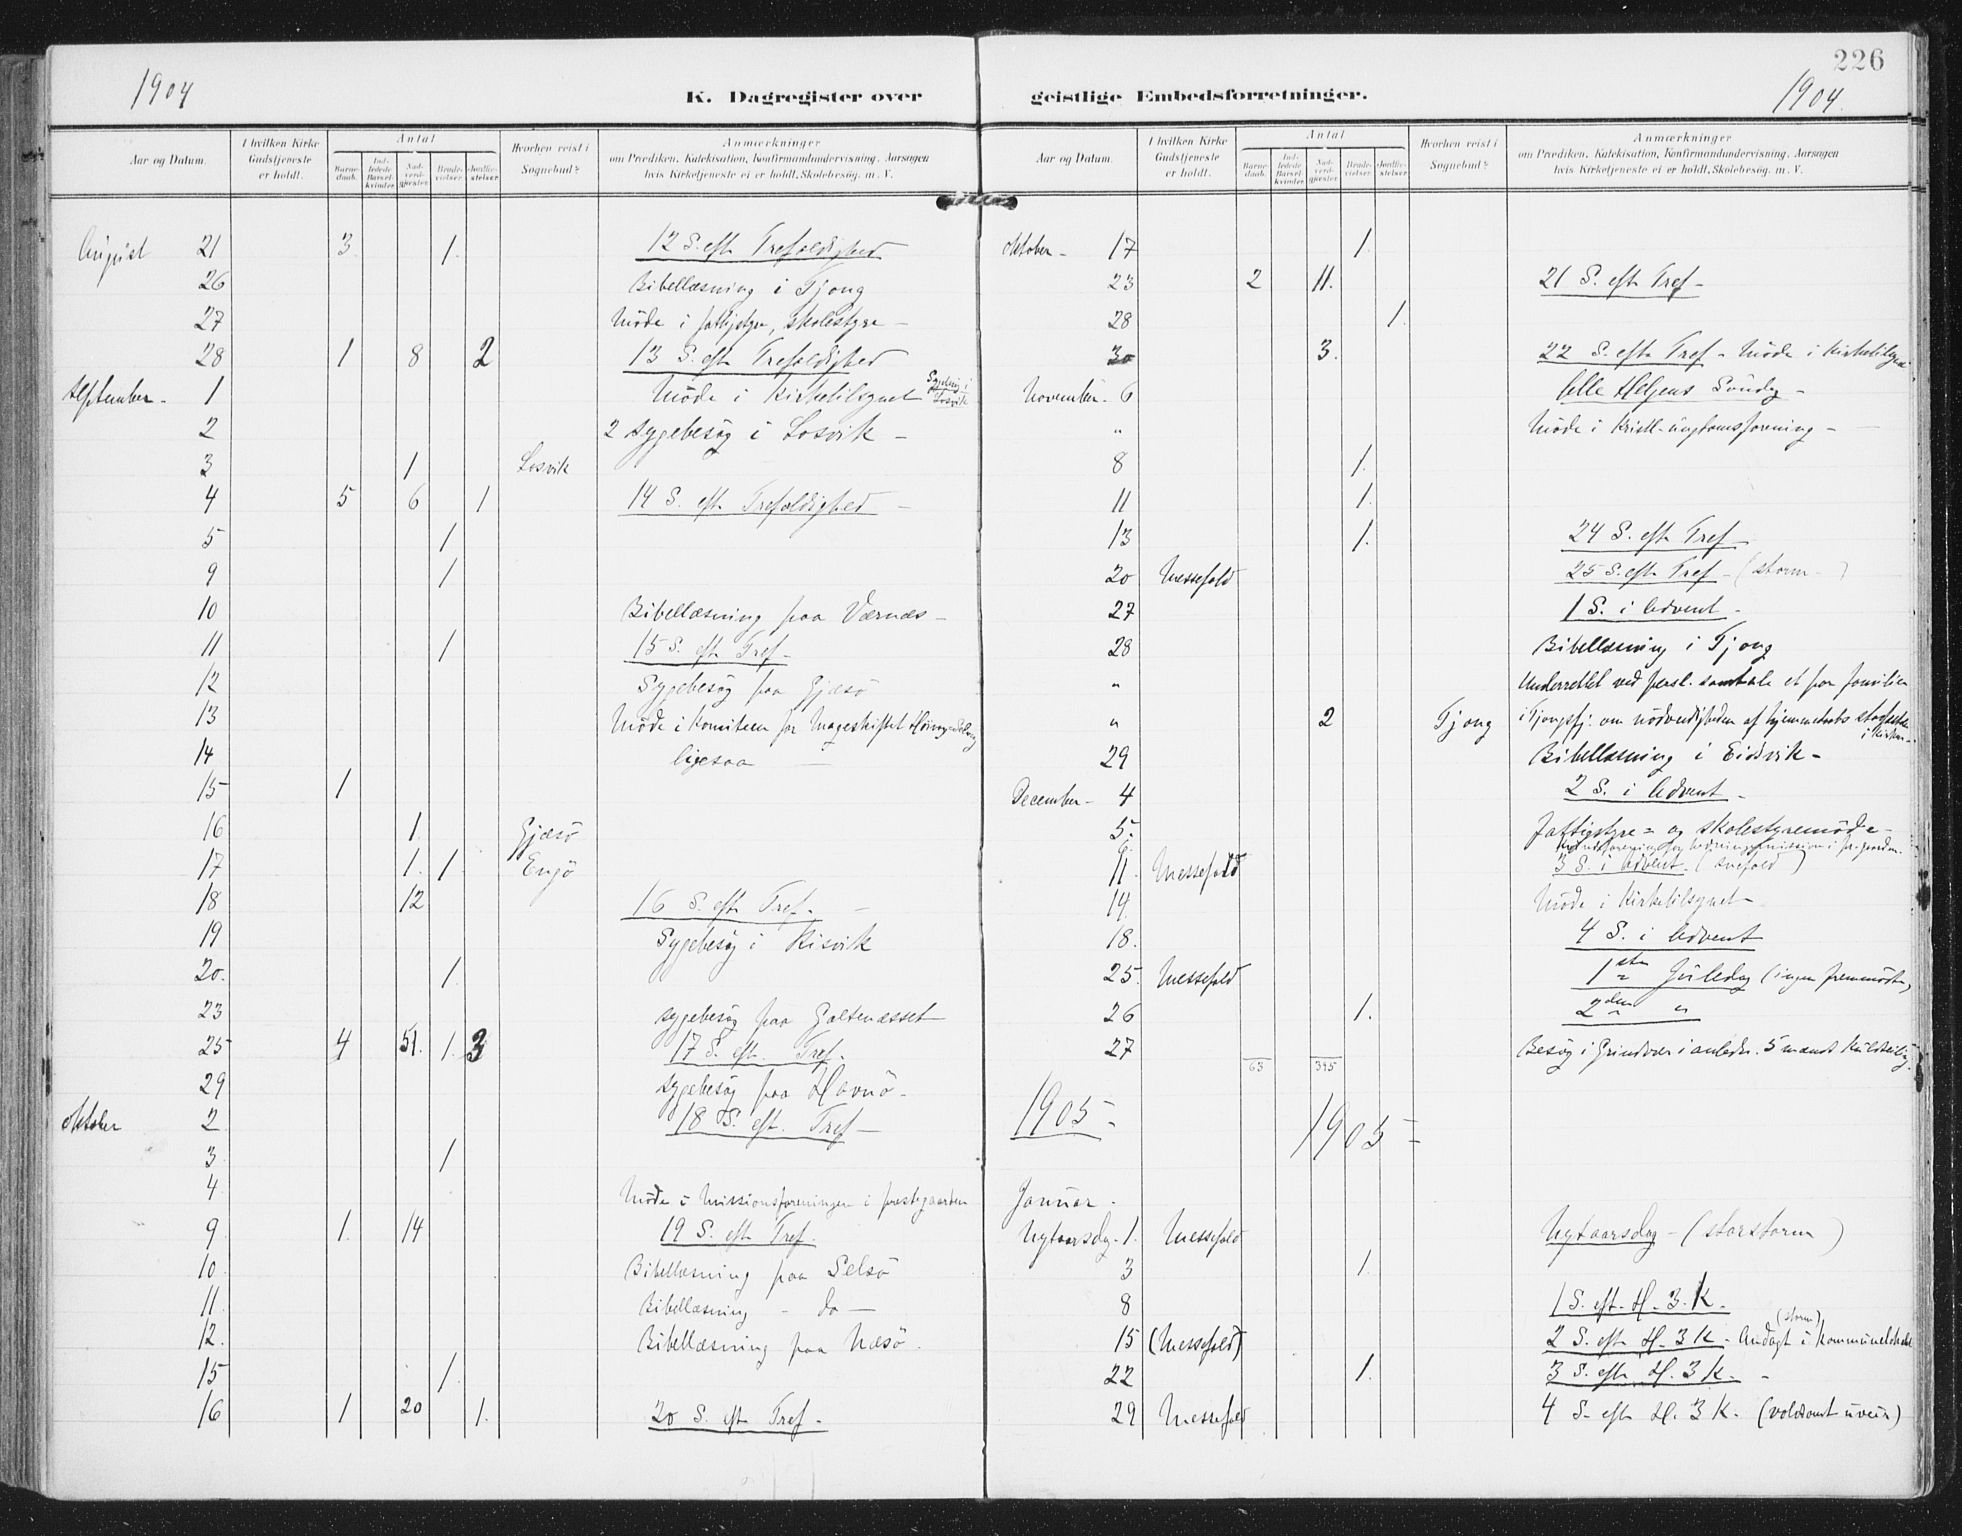 226
1904
K. Dagregister over
geistlige Embedsforretninger.
1904.
Aar og Datum.
I hvilken Kirke Gudstjeneste er holdt.
Antal
Barnedaab.
Indledede Barselkvinder.
Nadverdgjester.
Brudevielser.
Jordfæstelser.
Hvorhen reist i Sognebud?
Anmærkninger
om Prædiken, Katekisation, Konfirmandundervisning, Aarsagen
hvis Kirketjeneste ei er holdt, Skolebesøg. m. V.
August 21 3. 1. 12 S. eft Trefoldighed
26 Bibellæsning i Tjong
27 Möde i fattigstyre, skolestyre –
28 1 8 2 13 S. eft Trefoldighed
September. 1 Möde i Kirketilsynet
2 2 sygebesög i Losvik –
3 1 Losvik
4 5 6 1 14 S. eft Trefoldighed –
5 1
9 1
10 Bibellæsning paa Værnæs –
11 1 15 S. eft Tref –
12 Sygebesög paa Gjæsö
13 Möde i Komiteen for Mageskiftet
14 ligesaa —
15 1
16 1. Gjæsö
17 1. 1 Engö
18 12 16 S. eft Tref. –
19 Sygebesög i Risvik
20. 1.
23 sygebesög paa Galtenæsset
25 4 51. 1. 3 17 S. eft. Tref.
29 sygebesög paa Havnö.
Oktober 2 18 S. eft. Tref –
3. 1
4 Möde i Missionsforeningen i prestegaarden
9 1. 14 19 S. eft Tref.
10. Bibellæsning paa Selsö
11. Bibellæsning - do —
12. Bibellæsning paa Næsö.
15 1.
16 1 20 1. 20 S. eft Tref –
Aar og Datum.
I hvilken Kirke Gudstjeneste er holdt.
Antal
Barnedaab.
Indledede Barselkvinder.
Nadverdgjester.
Brudevielser.
Jordfæstelser.
Hvorhen reist i Sognebud?
Anmærkninger
om Prædiken, Katekisation, Konfirmandundervisning, Aarsagen
hvis Kirketjeneste ei er holdt, Skolebesøg. m. V.
Oktober – 17 1.
23 2 11. 21 S. eft Tref –
28 1.
30 3. 22 S. eft Tref – Möde i Kirketilsynet
November – 6 Alle Helgens Söndag –
" Möde i Kristl. ungdomsforening –
8 1.
11 1.
13 1. 24 S. eft Tref
20 Messefald 25 S. eft Tref – (storm –)
27 1 S. i Advent –
28 Bibellæsning i Tjong
" Underrettet ved persl. samtale et par familier
" 2 Tjong i Tjongsfj. om nödvendigheden af hjemmedaabs stadfæstelse i Kirken –
29 Bibellæsning i Eidsvik –
December – 4 2 S. i Advent –
5. Fattigstyre= og skolestyremöde –
11. Messefald 3 S. i Advent. (snefald)
14. Möde i Kirketilsynet –
18. 4 S. i Advent
25. Messefald 1ste Juledag (ingen fremmödte)
26 1. 2den "
27 Besög i Grindvær i anledn. 5 mænds Kuldseiling.
63 345
1905 =
1905 =
Januar.
Nytaarsdg. 1. Messefald Nytaarsdag – (storstorm)
3 1.
8 1 S. eft. H. 3. K.
(storm)
15 (Messefald) 2 S. eft H. 3 K – Andagt i Kommunelokalet
22 1. 3 S. eft. H. 3 K. –
29 Messefald 4 S. eft H. 3 K. (voldsomt uveir)